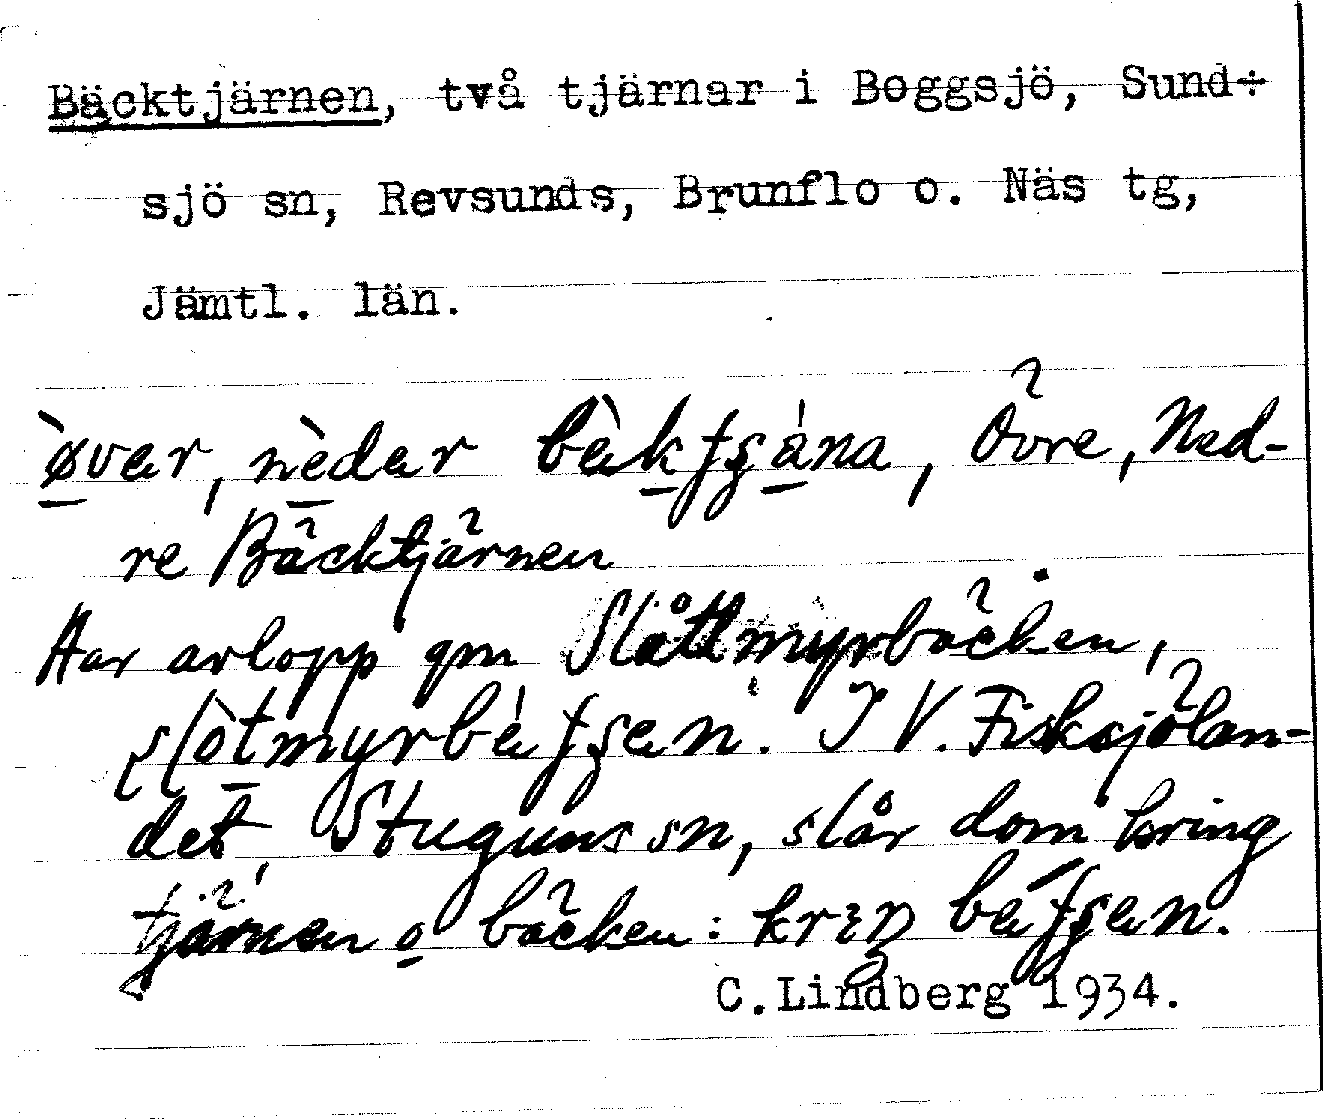 Bäcktjärnen, två tjärnar i Boggsjö, Sund÷
sjö sn, Revsunds, Brunflo o. Näs tg,
Jämtl. län.
øvar, nèdar bàkʃʂána, Övre, Ned-
re Bäcktjärnen
Har avlopp gm Slåttmyrbäcken,
slòtmyrbèʃʂan. I V. Fisksjölan-
det, Stuguns sn, slår dom kring
tjärnen o bäcken: krɪŋ béʃʂan.
C.Lindberg 1934.